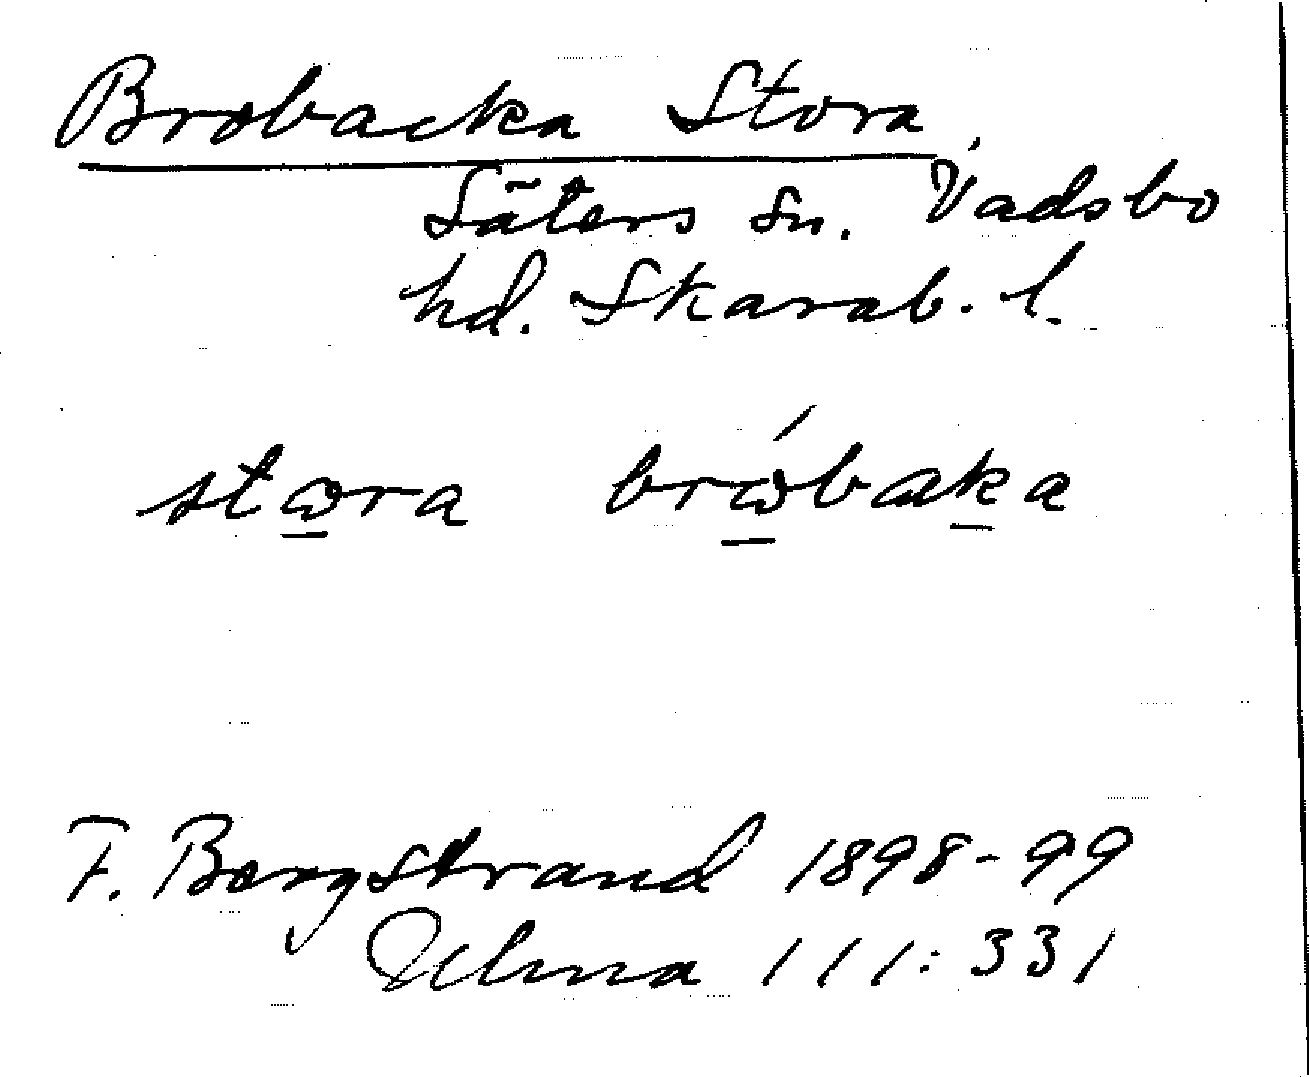 Brobacka Stora,
Säters sn. Vadsbo
hd. Skarab. l.
stωra brώbaka
F. Bergstrand 1898-99
Ulma 111:331